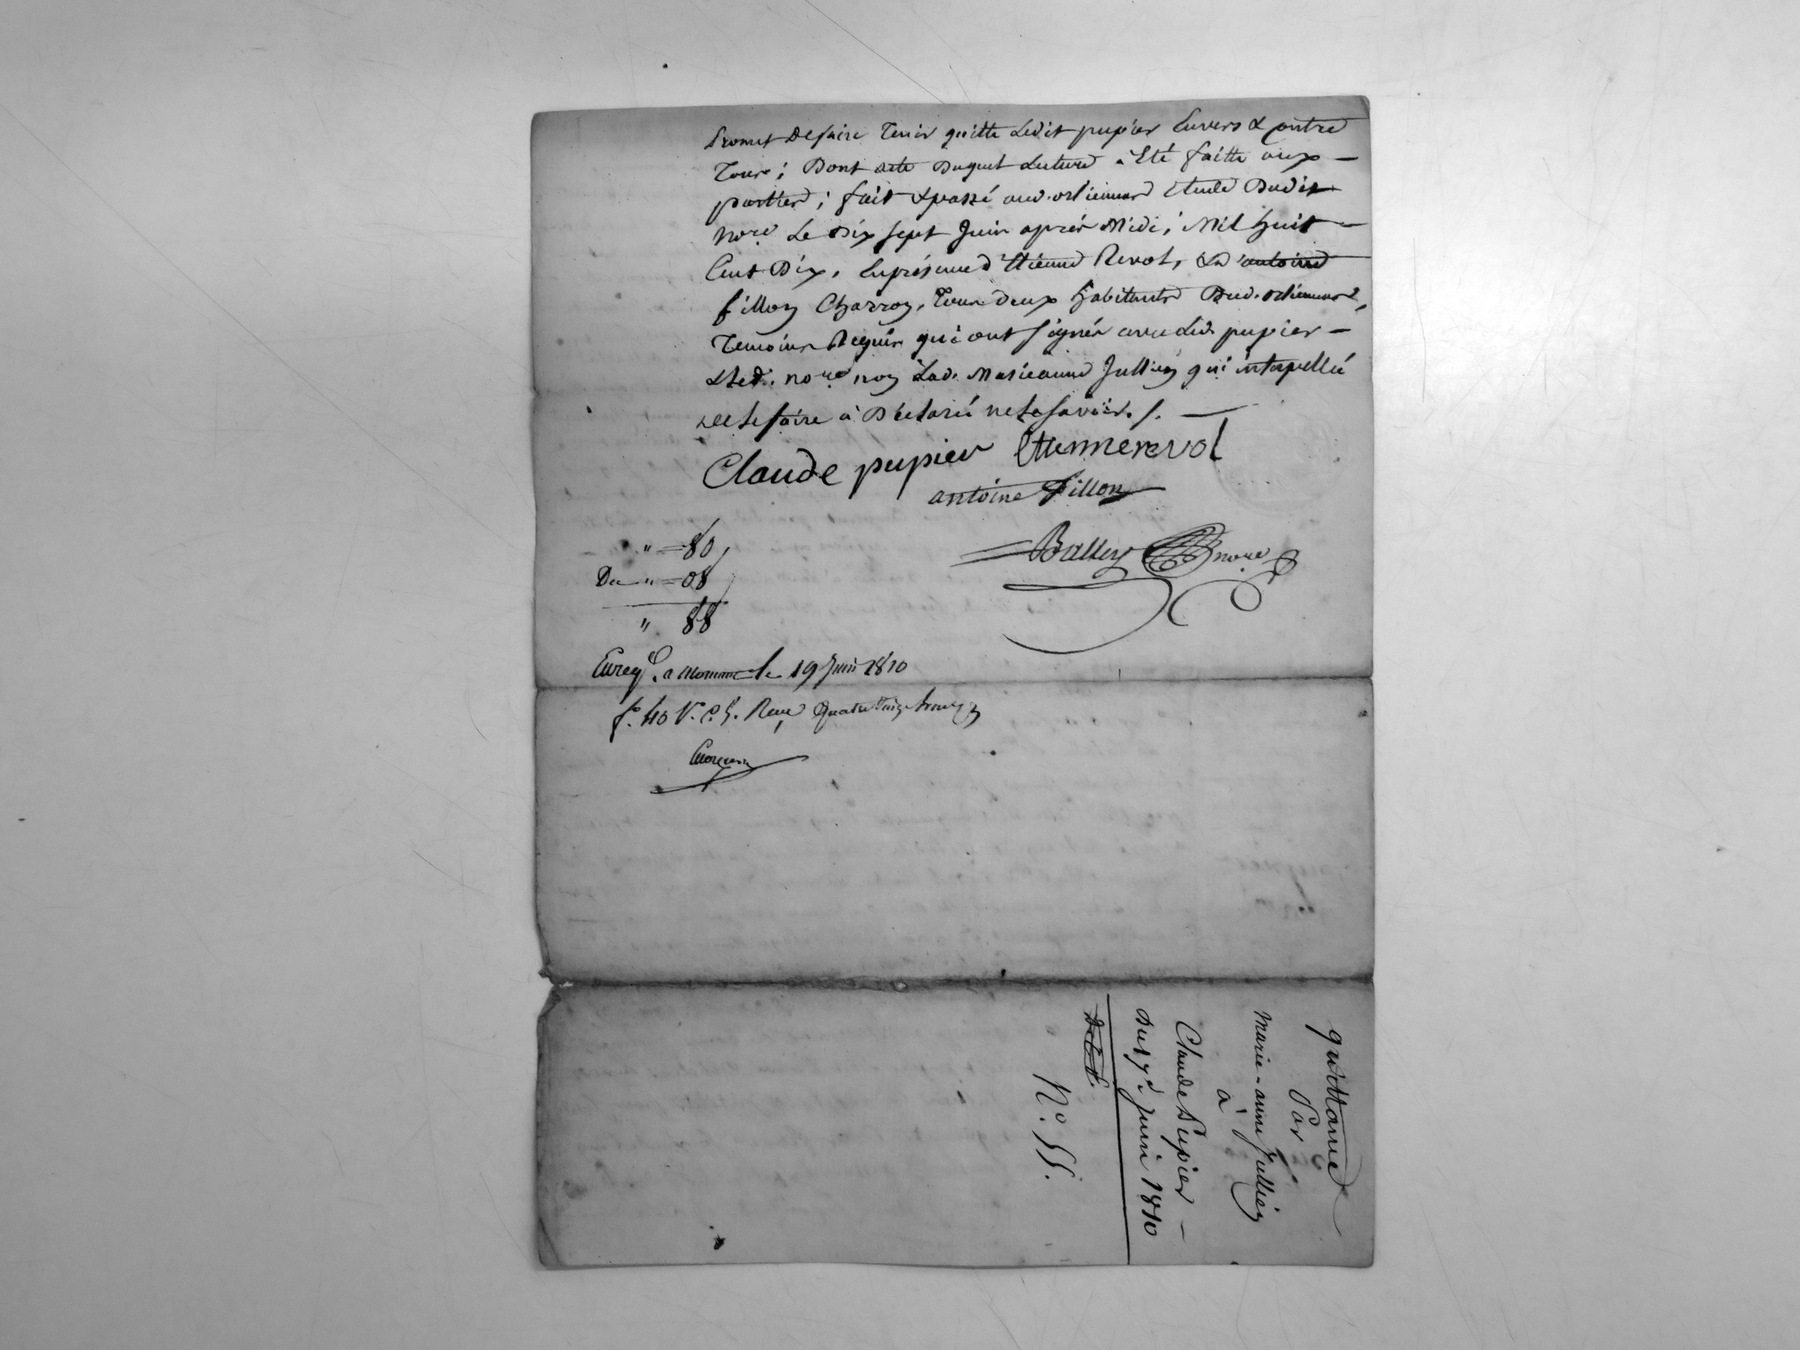 promet de faire tenir quitte ledit pupier Envers & Contre
Tous; Dont acte Duquel Lecture a Eté faitte aux
partied; fait & passé aud. Etude Dudit
Nore. Le Dix Sept Juin après Midi, Mil huit
Cent Dix, En présence d'Etienne Revol, & d'antoine
fillon Charron, Tous deux habitants Dud.
Temoins Requis qui ont signés avec Led. pupier
& Led. nore non Lad. Marieanne Jullien qui interpellée
de Le faire à Déclaré ne Le Savoir. /.
Claude pupier Etiennerevol
antoine Fillon
Balley nore
" = 80
De " = 08
" 88
Enregé. a le 19 Juin 1810
fo. 40 Vo. C. 5. Reçu quatre vingt
quittance
Par
Marie-anne Jullien
à
Claude Pupier
Du 17e. Juin 1810
No. 55.